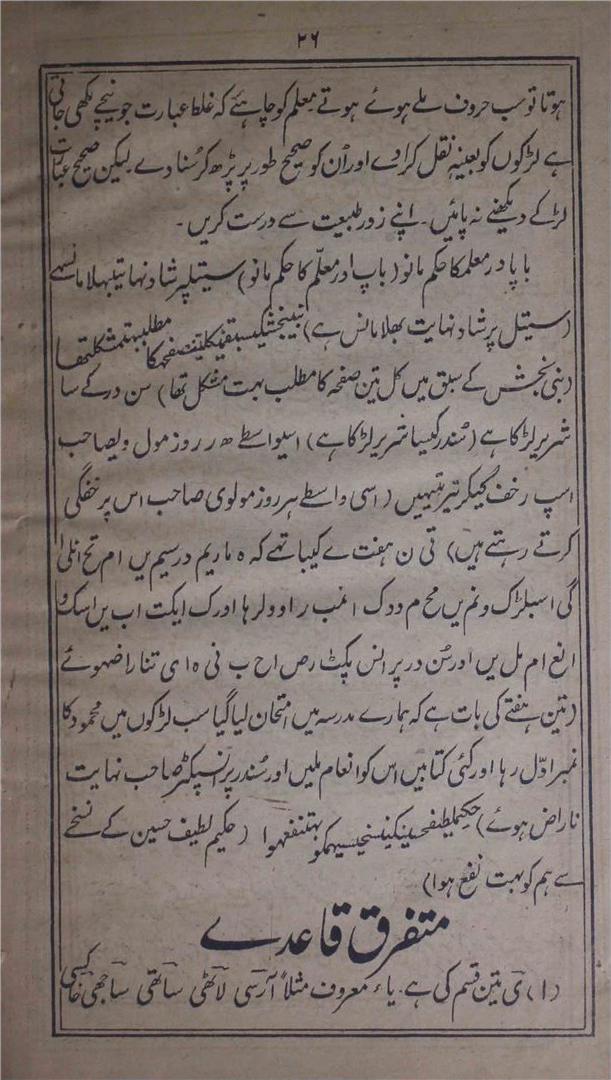 ۲۶
ہوتا تو سب حروف ملے ہوئے ہوتے معلم کو چاہئے کہ غلط عبارت جو نیچے لکھی جاتی
ہے لڑکوں کو بعینہ نقل کرا دے اور اُن کو صحیح طور پر پڑھ کر سُنا دے لیکن صحیح عبارت
لڑکے دیکھنے نہ پائیں۔ اپنے زور طبیعت سے درست کریں۔
باپادر معلمکا حکم مانو (باپ اور معلّم کا حکم مانو) سیتلپرشاد نہایتبھلا مانسہے
(سیتل پرشاد نہایت بھلا مانس ہے)
(نبی بخش کے سبق میں کل تین صفحہ کا مطلب بہت مشکل تھا) سن در کے سا
شریر لڑکا ہے (سُندر کیسا شریر لڑکا ہے) اسیواسطے ھ رروز مول ویصاحب
اسپ رخف گیکرتیرہتیہیں (اسی واسطے ہر روز مولوی صاحب اس پر خفگی
کرتے رہتے ہیں) تی ن ہفت ے کیباتہے کہ ہ ماریم درسیم یں ام تح انلی ا
گی اسبلڑک ونم یں مح م ود ک ا نمب ر اوولرہا اورک ایکت اب یں اسک و
انع ام مل یں اور سُن در پر انس پکٹ رص اح ب نی ہ ای تنا راضہوئے
(تین ہفتے کی بات ہے کہ ہمارے مدرسہ میں امتحان لیا گیا سب لڑکوں میں محمود کا
نمبر اوّل رہا اور کئی کتابیں اس کو انعام ملیں اور سُندر پر انسپکٹر صاحب نہایت
ناراض ہوئے) (حکیم لطیف حسین کے نسخے
سے ہم کو بہت نفع ہوا)
متفرق قاعدے
(۱) ی تین قسم کی ہے۔ یاء معروف مثلاً آرسی لاٹھی ساتھی ساجھی خاکسی